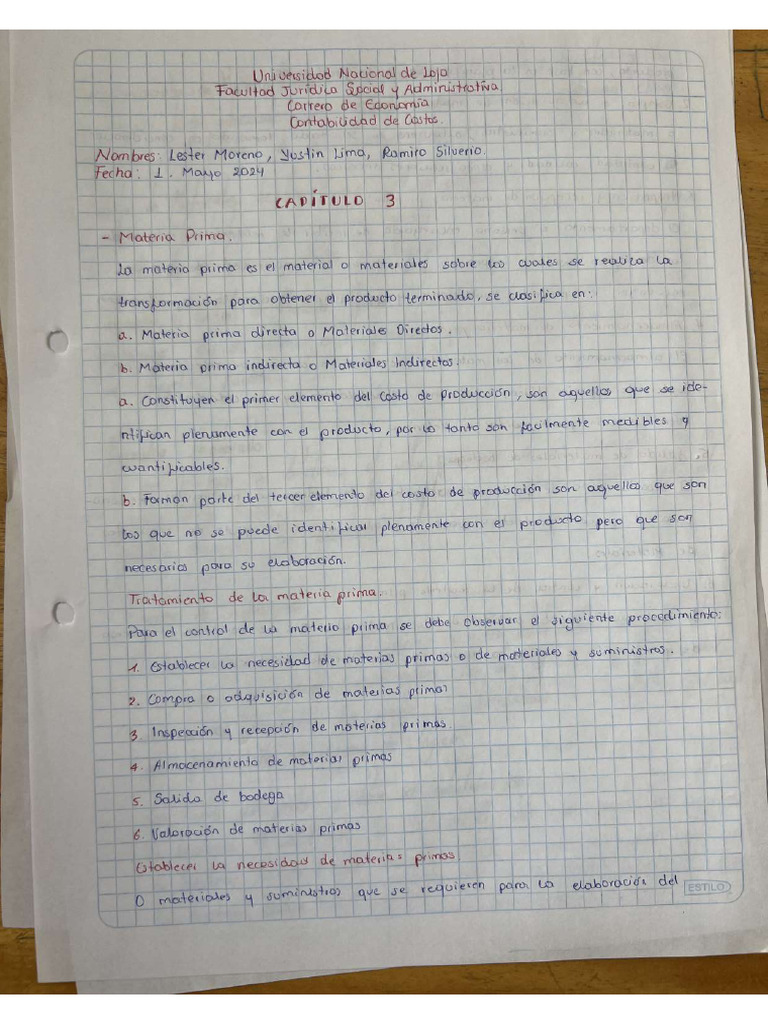 Universidad Nacional de Loja
Facultad Jurídica Social y Administrativa
Carrera de Economía
Contabilidad de Costos.
Nombres: Lester Moreno, Yustin Lima, Ramiro Silverio.
Fecha: 1. Mayo 2024
CAPÍTULO 3
- Materia Prima.
La materia prima es el material o materiales sobre los cuales se realiza la
transformación para obtener el producto terminado, se clasifica en:
a. Materia prima directa o Materiales Directos.
b. Materia prima indirecta o Materiales Indirectos.
a. Constituyen el primer elemento del Costo de Producción, son aquellos que se ide-
ntifican plenamente con el producto, por lo tanto son facilmente medibles y
cuantificables.
b. Forman parte del tercer elemento del costo de producción son aquellos que son
los que no se puede identificar plenamente con el producto pero que son
necesarios para su elaboración.
Tratamiento de la materia prima.
Para el control de la materia prima se debe observar el siguiente procedimiento:
1. Establecer la necesidad de materias primas o de materiales y suministros.
2. Compra o adquisición de materias primas
3. Inspección y recepción de materias primas.
4. Almacenamiento de materias primas
5. Salida de bodega
6. Valoración de materias primas
Establecer la necesidad de materias primas
O materiales y suministros que se requieren para la elaboración del
ESTILO